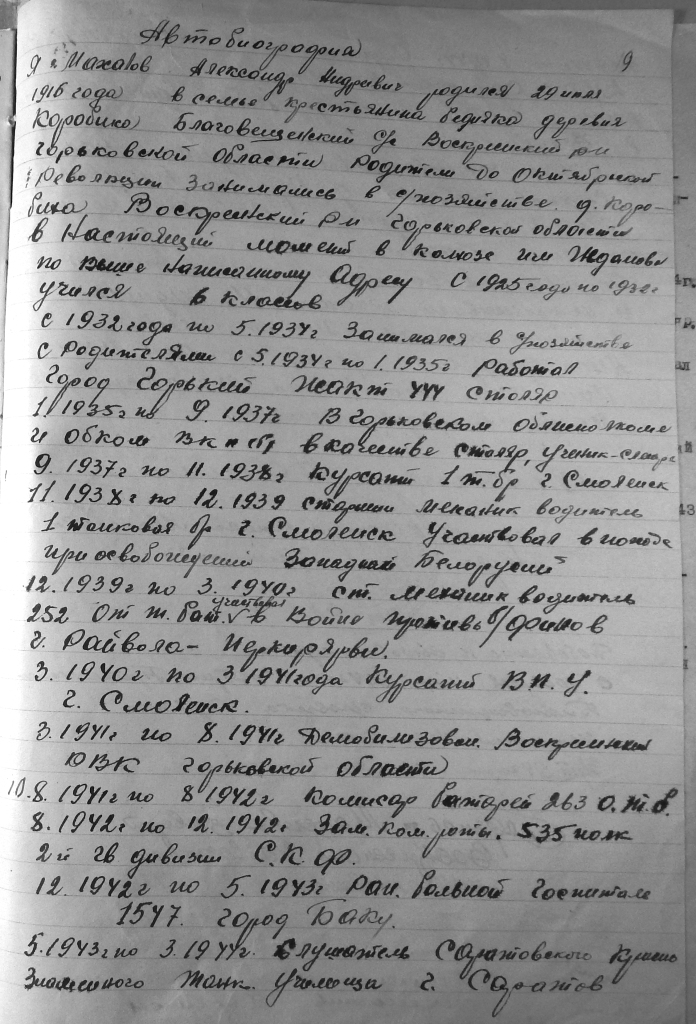 Автобиография
9
Я Махалов Александр Андреевич родился 29 июля
1916 года в семье крестьянина бедняка деревня
Коробиха Благовещенский с/с Воскресенский р-н
горьковской области Родители до Октябрьской
Революции занимались в с/хозяйстве д. Коро-
биха Воскресенский р-н горьковской области
в Настоящий момент в колхозе им Жданова
по выше написанному адресу С 1925 года по 1932 г
учился 6 классов
с 1932 года по 5.1934 г Занимался в с/хозяйстве
с родителями с 5.1934 г по 1.1935 г работал
город Горький Жакт столяр
1.1935 г по 9.1937 г В горьковском облисполкоме
и обком ВКП(б) в качестве столяр, ученик-слесарь
9.1937 г по 11.1938 г Курсант 1 т.бр г. Смоленск
11.1938 г по 12.1939 старший механик водитель
1 танковая бр г. Смоленск Участвовал в походе
при освобождении Западной Белорусии
12.1939 г по 3.1940 г ст. механик водитель
252 От т. бат. участвовал в Войне против б/финов
г. Райвола - Перкярви.
3.1940 г по 3 1941 года Курсант В.П.У.
г. Смоленск.
3.1941 г по 8.1941 г Демобилизован. Воскресенский
РВК горьковской области
10.8.1941 г по 8 1942 г Комисар батареи 263 о.т.б.
8.1942 г по 12.1942 г Зам. ком. роты. 535 полк
2й гв дивизии С.К.Ф.
12.1942 г по 5.1943 г Ран. больной госпиталь
1547. город Баку.
5.1943 г по 3.1944 г. Слушатель Саратовского Красно
Знаменного танк. Училища г. Саратов